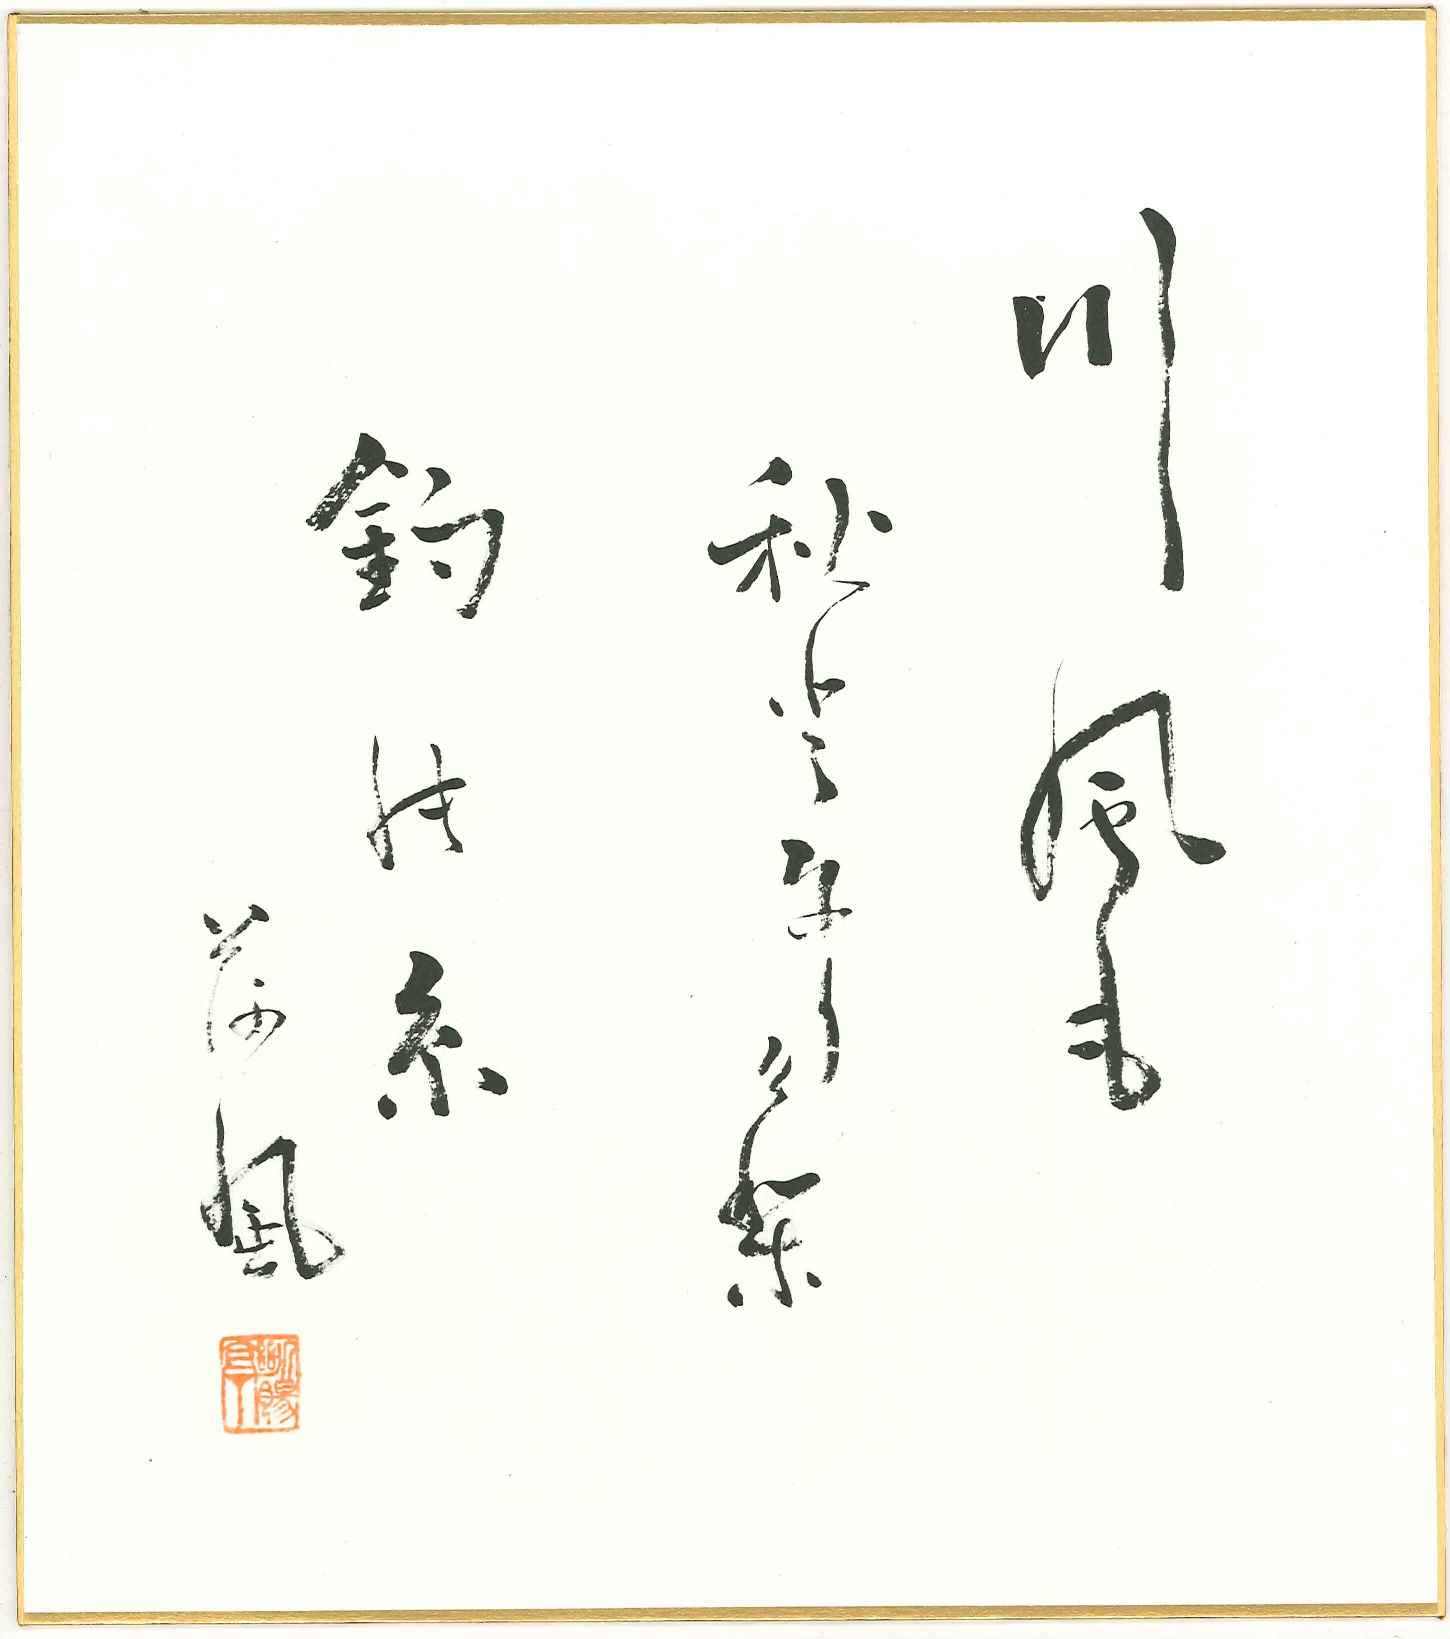 川風も
秋となりけり
釣の糸
荷風